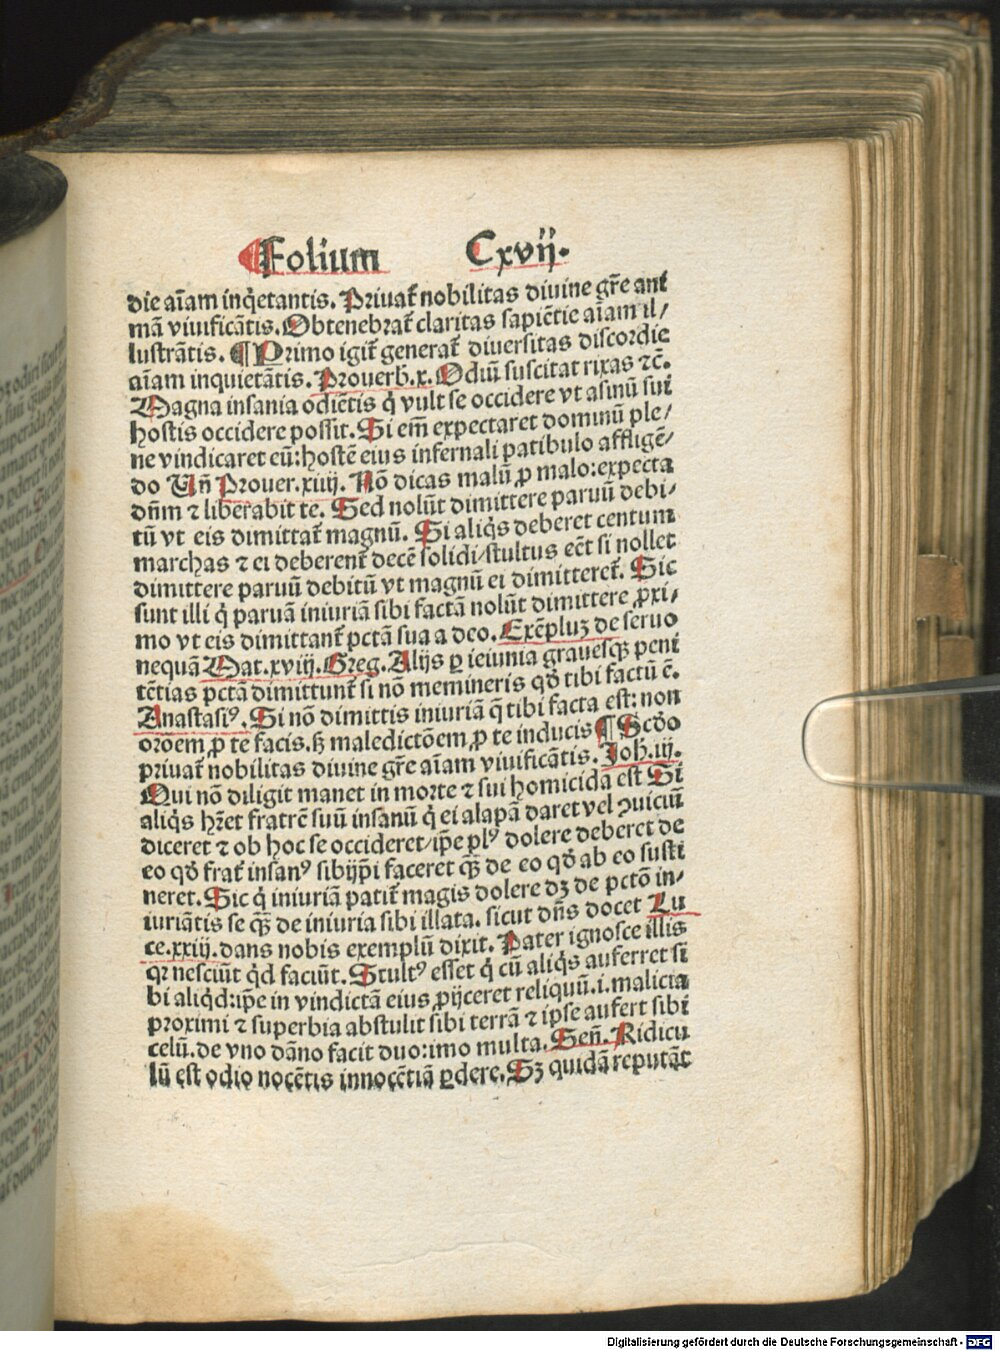 Folium Cxvij.
die aīam inq̄etantis. Priuat̄ nobilitas diuine gr̄e ani
mā viuificātis. Obtenebrat̄ claritas sapiētie aīam il/
lustrātis. ¶ Primo igit̄ generat̄ diuersitas discordie
aīam inquietātis. Prouerb̄. x. Odiū suscitat rixas ⁊c̄.
Magna insania odiētis q̇ vult se occidere vt asinū sui
hostis occidere possit. Si em̄ expectaret dominū ple/
ne vindicaret eū: hostē eius infernali patibulo affligē/
do Vn̄ Prouer. xiiij. Nō dicas malū ꝓ malo: expecta
dn̄m ⁊ liberabit te. Sed nolūt dimittere paruū debi/
tū vt eis dimittat̄ magnū. Si aliq̇s deberet centum
marchas ⁊ ei deberent̄ decē solidi/ stultus eēt si nollet
dimittere paruū debitū vt magnū ei dimitteret̄. Sic
sunt illi q̇ paruā iniuriā sibi factā nolūt dimittere ꝓxi/
mo vt eis dimittant̄ pctā sua a deo. Exēpluꝫ de seruo
nequā Mat. xviij. Greg. Alijs ꝑ ieiunia grauesq̄ꝫ peni
tētias pctā dimittunt̄ si nō memineris qđ tibi factū ē.
Anastasiꝰ. Si nō dimittis iniuriā q̄ tibi facta est: non
orōem ꝓ te facis. sꝫ maledictōem ꝓ te inducis ¶ Scđo
priuat̄ nobilitas diuine gr̄e aīam viuificātis. Joh̄. iij.
Qui nō diligit manet in morte ⁊ sui homicida est Si
aliq̇s hr̄et fratrē suū insanū q̇ ei alapā daret vel ꝯuiciū
diceret ⁊ ob hoc se occideret/ ip̄e plꝰ dolere deberet de
eo qđ frat̄ insanꝰ sibijp̄i faceret q̄ꝫ de eo qđ ab eo susti
neret. Sic q̇ iniuriā patit̄ magis dolere dꝫ de pctō in/
iuriātis se q̄ꝫ de iniuria sibi illata. sicut dn̄s docet Lu
ce. xxiij. dans nobis exemplū dixit. Pater ignosce illis
qꝛ nesciūt q̇d faciūt. Stultꝰ esset q̇ cū aliq̇s auferret si
bi aliq̇d: ip̄e in vindictā eius ꝓijceret reliquū. i. malicia
proximi ⁊ superbia abstulit sibi terrā ⁊ ipse aufert sibi
celū. de vno dāno facit duo: imo multa. Sen̄. Ridicu
lū est odio nocētis innocētiā ꝑdere. Sꝫ quidā reputāt
Digitalisierung gefördert durch die Deutsche Forschungsgemeinschaft - DFG